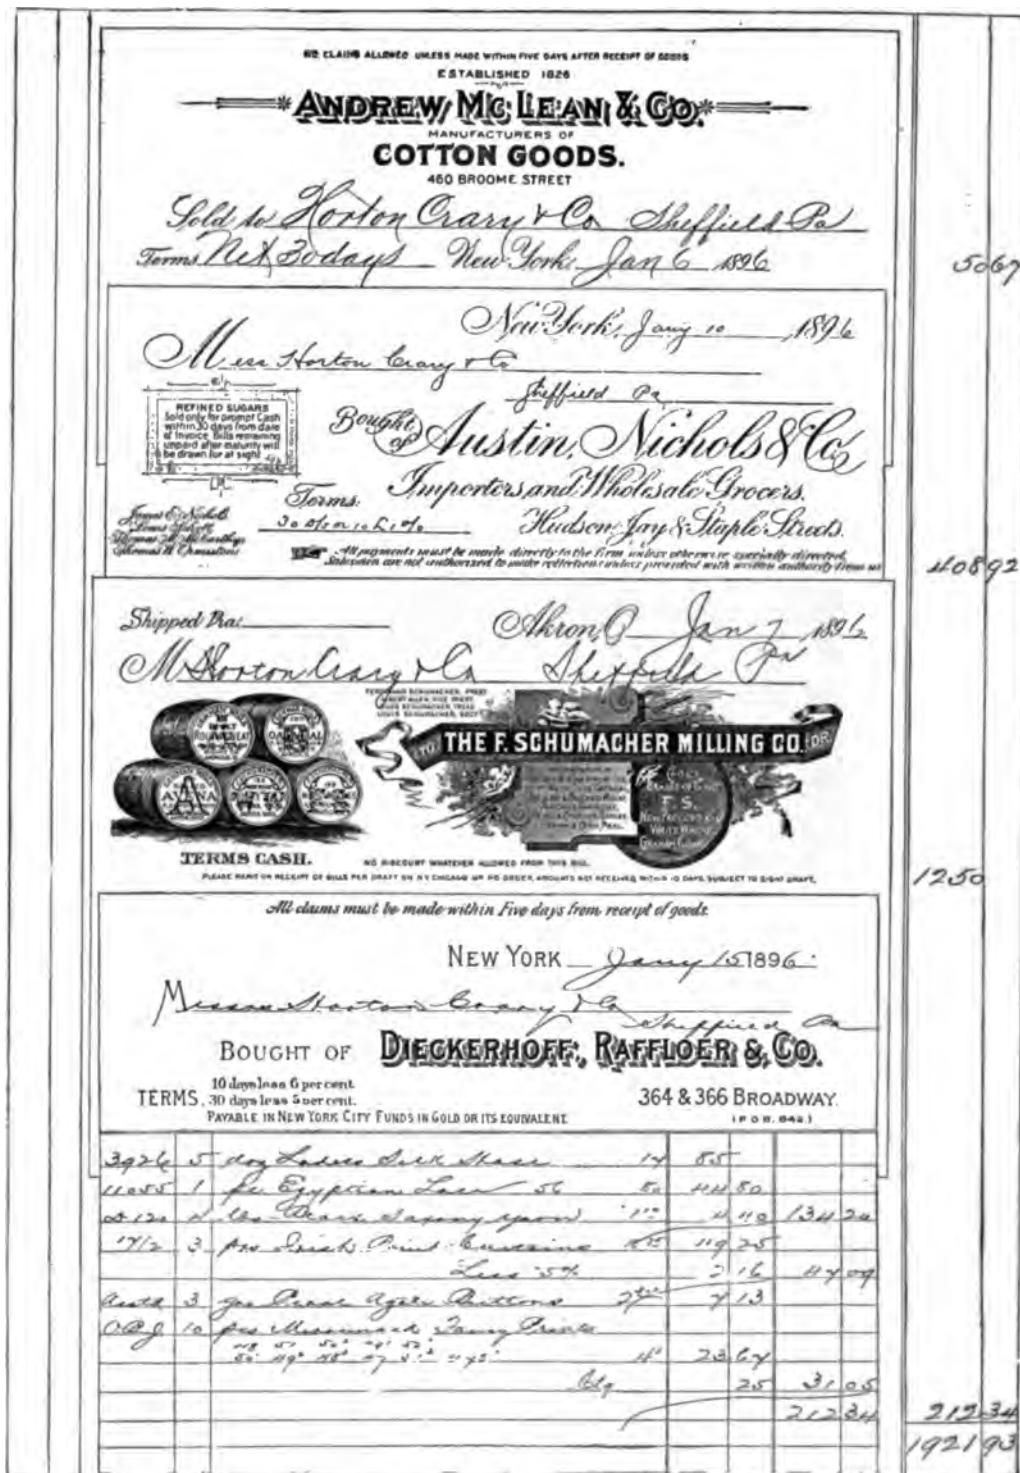 NO CLAIMS ALLOWED UNLESS MADE WITHIN FIVE DAYS AFTER RECEIPT OF GOODS
ESTABLISHED 1826
ANDREW MCLEAN & CO.
MANUFACTURERS OF
COTTON GOODS.
460 BROOME STREET
Sold to Horton Crary & Co Sheffield Pa
Terms Net 30 days New York, Jan 6 1896
5067
New York, Jany 10 1896
Mess Horton Crary & Co
Sheffield Pa
REFINED SUGARS
Sold only for prompt Cash
within 30 days from date
of Invoice. Bills remaining
unpaid after maturity will
be drawn for at sight
Bought of Austin, Nichols & Co
Importers and Wholesale Grocers.
Terms:
Hudson, Jay & Staple Streets.
James E. Nichols
Thomas M. McCarthy
All payments must be made directly to the firm unless otherwise specially directed.
Salesmen are not authorized to make collections unless provided with written authority from us
40892
Shipped Via:
Akron, O. Jan 7 1896
M Horton Crary & Co Sheffield Pa
FERDINAND SCHUMACHER, PREST
LOUIS SCHUMACHER, SECY
TO THE F. SCHUMACHER MILLING CO. DR.
F. S.
TERMS CASH.
NO DISCOUNT WHATEVER ALLOWED FROM THIS BILL.
PLEASE REMIT ON RECEIPT OF BILLS PER DRAFT ON N.Y. CHICAGO OR PO ORDER, AMOUNTS NOT RECEIVED WITHIN 10 DAYS, SUBJECT TO SIGHT DRAFT.
1250
All claims must be made within Five days from receipt of goods.
NEW YORK Jany 15 1896
Messrs Horton Crary & Co
Sheffield Pa
BOUGHT OF DIECKERHOFF, RAFFLOER & CO.
TERMS, 10 days less 6 per cent.
30 days less 5 per cent.
364 & 366 BROADWAY.
PAYABLE IN NEW YORK CITY FUNDS IN GOLD OR ITS EQUIVALENT
(P O B. 642.)
3926 5 doz Ladies Silk 17 85
11055 1 pc Egyptian Lace 56 80 44 80
134 20
17/2 3 pcs 119 25
Less 5% 2 16 47 09
3 gro Agate Buttons 7 13
10 pcs Merrimack Fancy Prints
23 67
25 31 05
212 34
212 34
1921 93